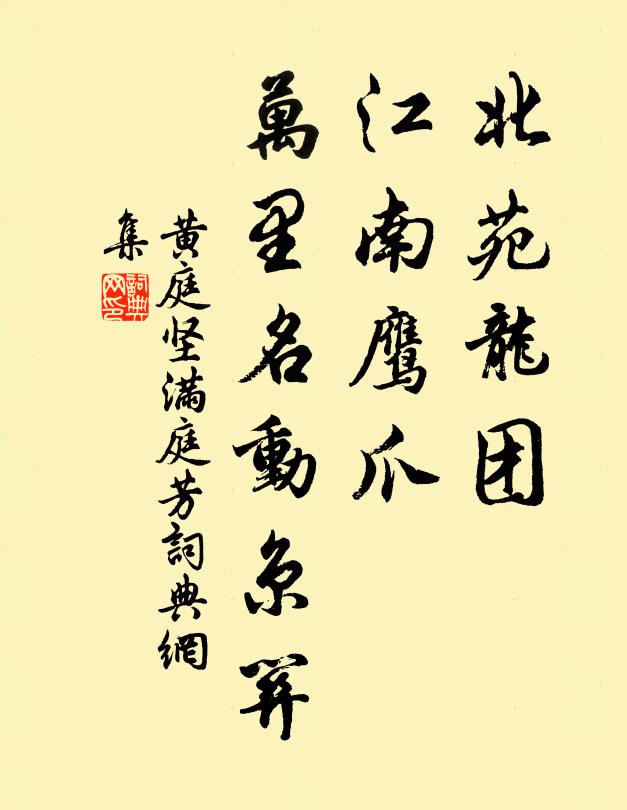 北苑龍团
江南鹰爪
萬里名動京關
黄庭坚滿庭芳詞典網
集
詞典
网印